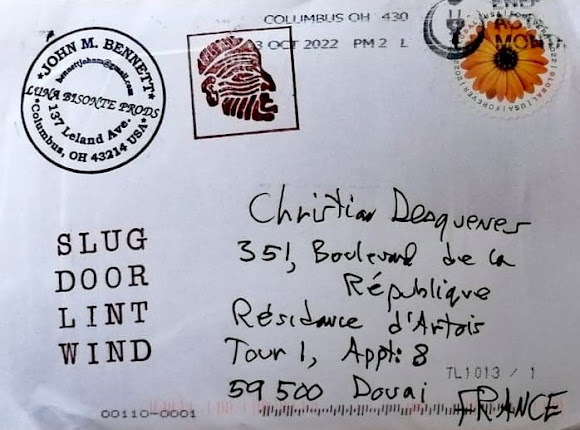 COLUMBUS OH 430
3 OCT 2022 PM 2 L
*JOHN M. BENNETT*
bennettjohnm@gmail.com
LUNA BISONTE PRODS
137 Leland Ave.
*Columbus, OH 43214 USA*
GLOBAL | USA | FOREVER | 2022
Christian Desquenes
351, Boulevard de la
République
Résidance d'Artois
Tour 1, Appt: 8
59 500 Douai
FRANCE
SLUG
DOOR
LINT
WIND
TL1013 / 1
00110-0001